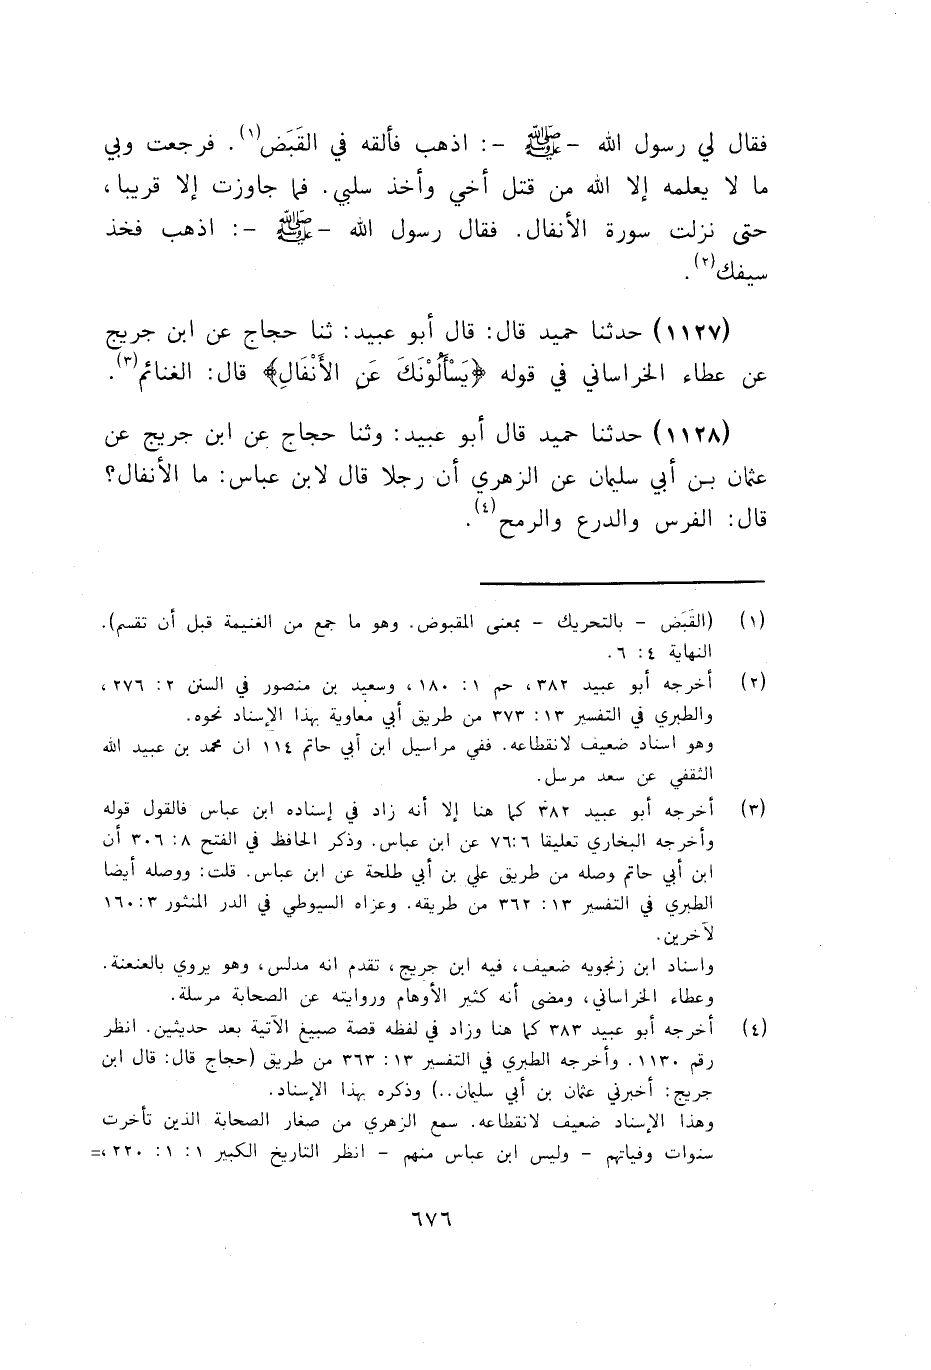 فقال لي رسول الله -ﷺ -: اذهب فألقه في القَبَض(١). فرجعت وبي
ما لا يعلمه إلا الله من قتل أخي وأخذ سلبي. فما جاوزت إلا قريبا،
حتى نزلت سورة الأنفال. فقال رسول الله -ﷺ -: اذهب فخذ
سيفك(٢).
(١١٢٧) حدثنا حميد قال: قال أبو عبيد: ثنا حجاج عن ابن جريج
عن عطاء الخراساني في قوله ﴿يَسْأَلُوْنَكَ عَنِ الأَنْفَالِ﴾ قال: الغنائم(٣).
(١١٢٨) حدثنا حميد قال أبو عبيد: وثنا حجاج عن ابن جريج عن
عثمان بن أبي سليمان عن الزهري أن رجلا قال لابن عباس: ما الأنفال؟
قال: الفرس والدرع والرمح(٤).
(١) (القَبَض - بالتحريك - بمعنى المقبوض. وهو ما جمع من الغنيمة قبل أن تقسم).
النهاية ٤: ٦.
(٢) أخرجه أبو عبيد ٣٨٢، حم ١: ١٨٠، وسعيد بن منصور في السنن ٢: ٢٧٦،
والطبري في التفسير ١٣: ٣٧٣ من طريق أبي معاوية بهذا الإسناد نحوه.
وهو اسناد ضعيف لانقطاعه. ففي مراسيل ابن أبي حاتم ١١٤ ان محمد بن عبيد الله
الثقفي عن سعد مرسل.
(٣) أخرجه أبو عبيد ٣٨٢ كما هنا إلا أنه زاد في إسناده ابن عباس فالقول قوله
وأخرجه البخاري تعليقا ٧٦:٦ عن ابن عباس. وذكر الحافظ في الفتح ٨: ٣٠٦ أن
ابن أبي حاتم وصله من طريق علي بن أبي طلحة عن ابن عباس. قلت: ووصله أيضا
الطبري في التفسير ١٣: ٣٦٢ من طريقه. وعزاه السيوطي في الدر المنثور ٣: ١٦٠
لآخرين.
واسناد ابن زنجويه ضعيف، فيه ابن جريج، تقدم انه مدلس، وهو يروي بالعنعنة.
وعطاء الخراساني، ومضى أنه كثير الأوهام وروايته عن الصحابة مرسلة.
(٤) أخرجه أبو عبيد ٣٨٣ كما هنا وزاد في لفظه قصة صبيغ الآتية بعد حديثين. انظر
رقم ١١٣٠. وأخرجه الطبري في التفسير ١٣: ٣٦٣ من طريق (حجاج قال: قال ابن
جريج: أخبرني عثمان بن أبي سليمان..) وذكره بهذا الإسناد.
وهذا الإسناد ضعيف لانقطاعه. سمع الزهري من صغار الصحابة الذين تأخرت
سنوات وفياتهم - وليس ابن عباس منهم - انظر التاريخ الكبير ١: ١: ٢٢٠،=
٦٧٦